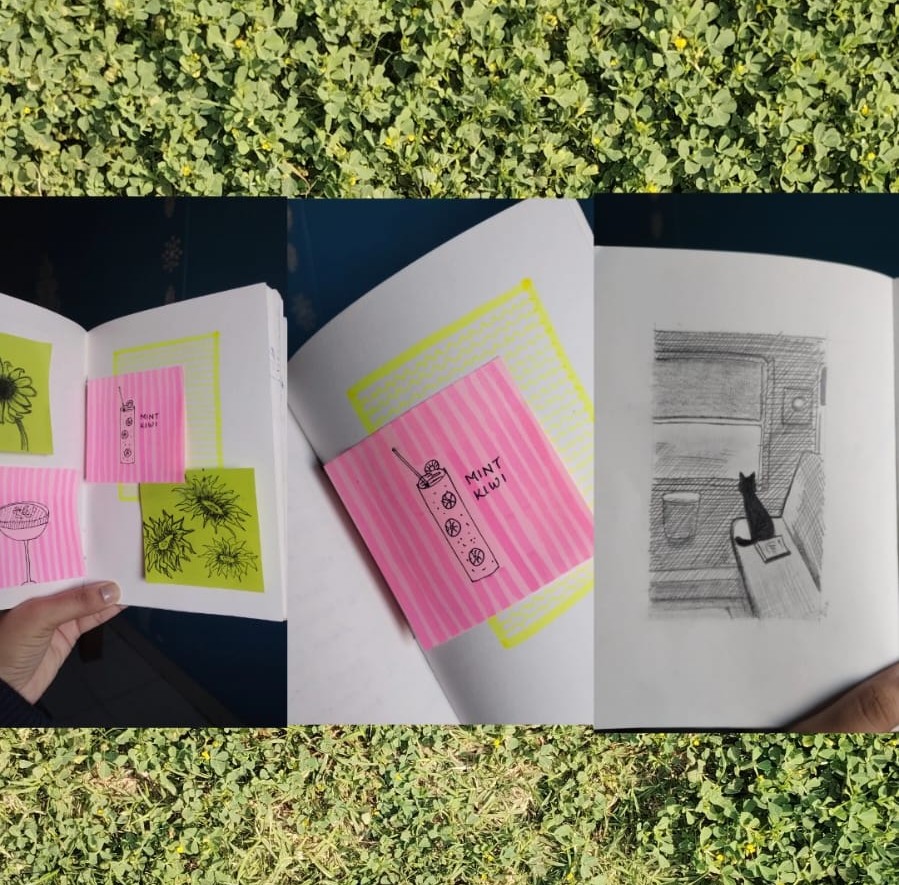 MINT
KIWI
MINT
KIWI